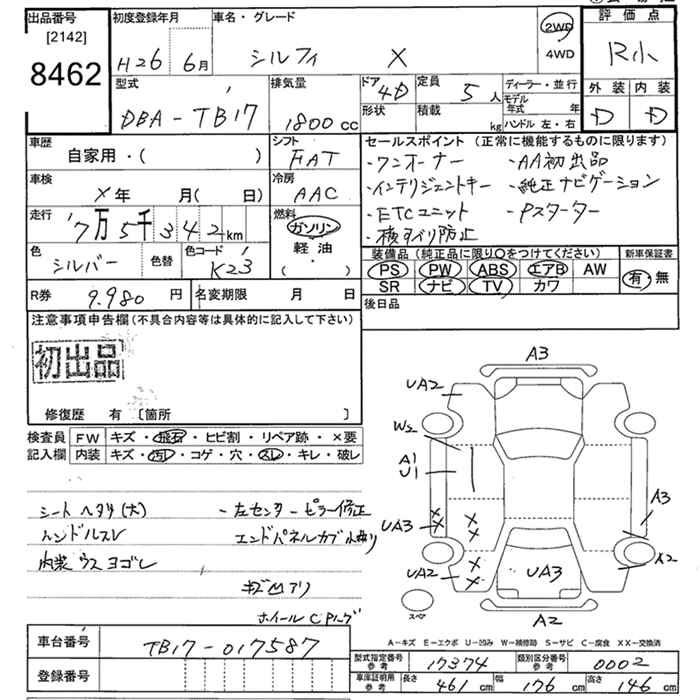 出品番号
[2142]
8462
初度登録年月
H26 6月
車名・グレード
シルフィ X
2WD
4WD
評価点
R小
外装 内装
D D
型式
DBA-TB17
排気量
1800cc
ドア 4D
形状
定員 5人
積載 kg
ディーラー・並行
モデル年式 年
ハンドル 左・右
車歴
自家用・( )
シフト
FAT
車検
X年 月( 日)
冷房
AAC
走行
7万5千342km
燃料
ガソリン
軽油
色
シルバー
色替
色コード
K23
R券 9.980円
名変期限 月 日
セールスポイント (正常に機能するものに限ります)
・ワンオーナー ・AA初出品
・インテリジェントキー ・純正ナビゲーション
・ETCユニット ・Pスターター
・横すべり防止
装備品 (純正品に限り○をつけてください)
PS PW ABS エアB AW
SR ナビ TV カワ
新車保証書
有・無
後日品
注意事項申告欄(不具合内容等は具体的に記入して下さい)
初出品
修復歴 有 [箇所 ]
検査員 FW キズ・飛石・ヒビ割・リペア跡・×要
記入欄 内装 キズ・汚レ・コゲ・穴・スレ・キレ・破レ
シートヘタリ(大) ・左センターピラー修正
ハンドルスレ エンドパネルカブル曲り
内装ウスヨゴレ
キズ凹アリ
ホイールCPハゲ
A3
UA2
W2
A1
U1
UA3
UA2
UA3
A3
A2
A2
スペア
A-キズ E-エクボ U-凹み W-補修跡 S-サビ C-腐食 XX-交換済
車台番号 TB17-017587
登録番号
型式指定番号 参考 17374 類別区分番号 参考 0002
車庫証明用 参考 長さ 461cm 幅 176cm 高さ 146cm